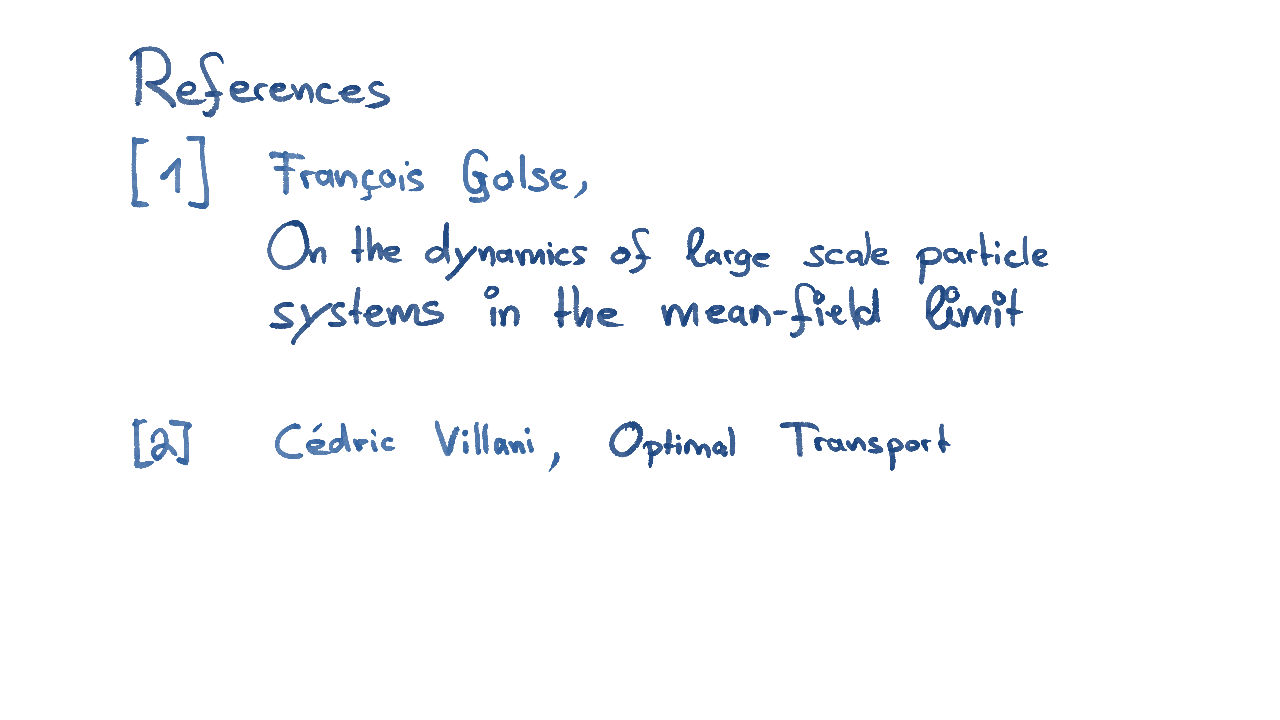 References
[1] François Golse,
On the dynamics of large scale particle
systems in the mean-field limit
[2] Cédric Villani, Optimal Transport